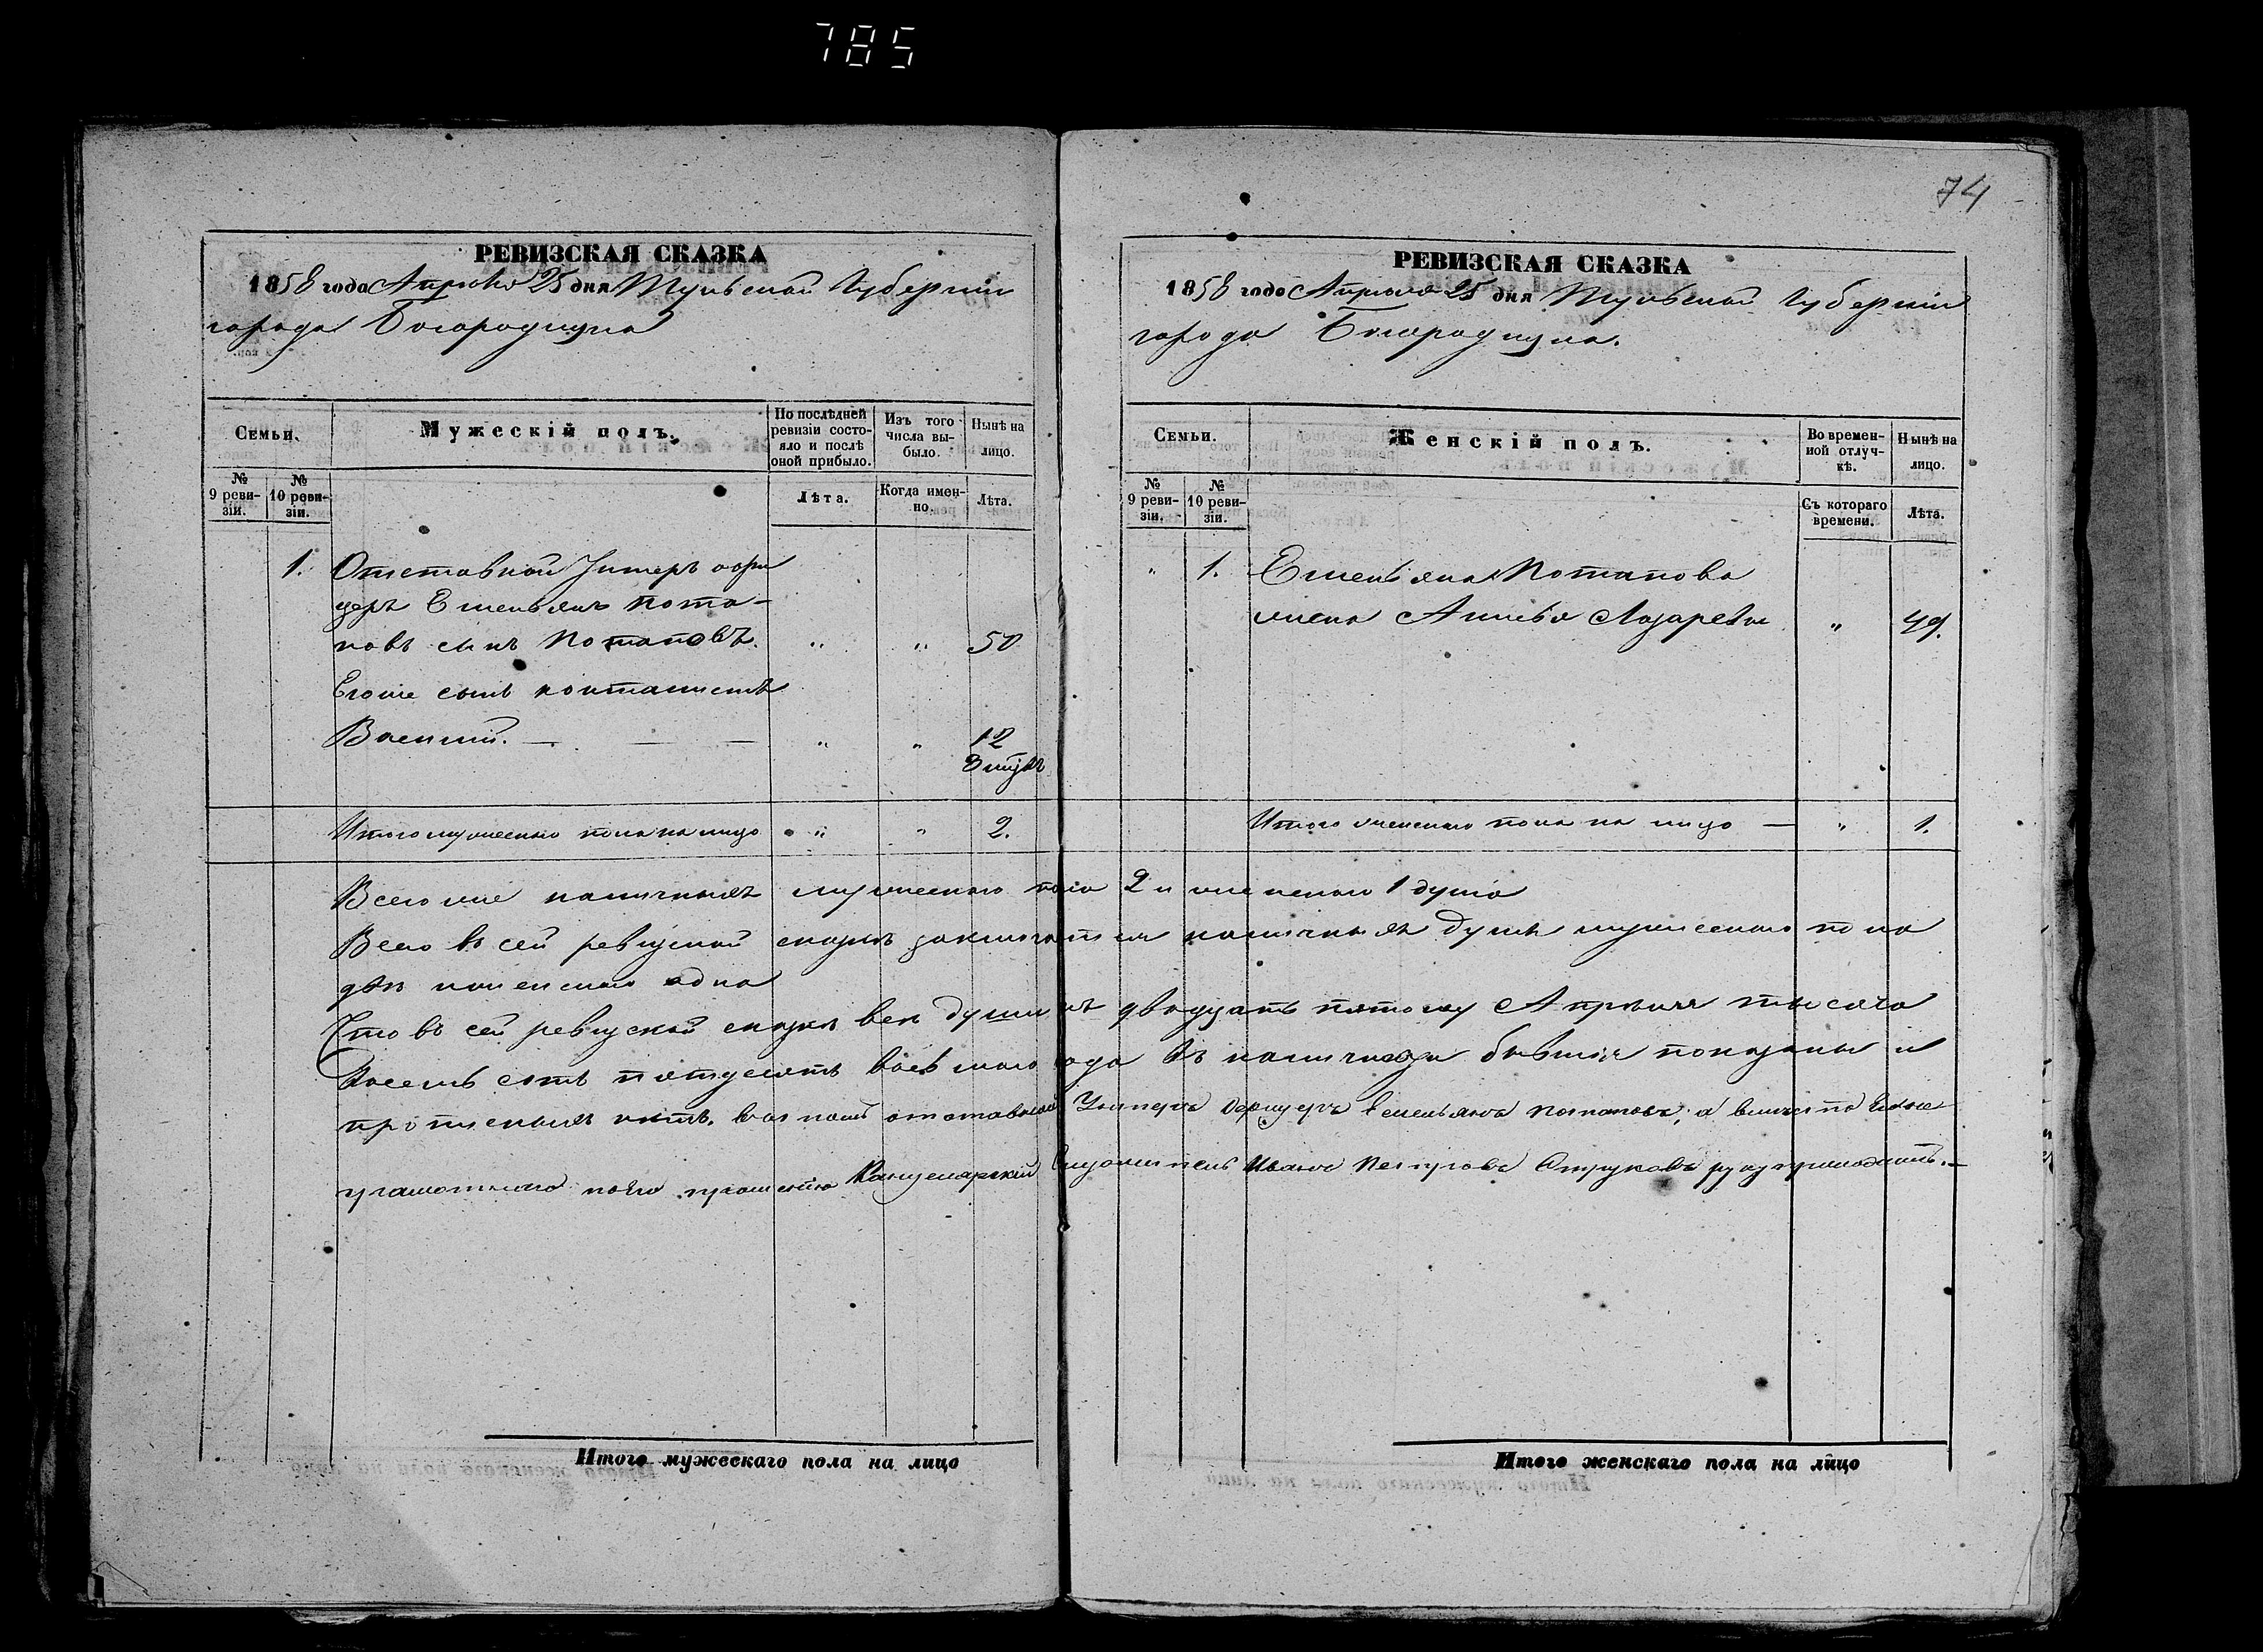 785
74
РЕВИЗСКАЯ СКАЗКА
1858 года Апрѣля 25 дня Тульской Губерніи
города Богородицка
Семьи.
Мужескій полъ.
По послѣдней ревизіи состояло и послѣ оной прибыло.
Изъ того числа выбыло.
Нынѣ на лицо.
№ 9 ревизіи.
№ 10 ревизіи.
Лѣта.
Когда именно.
Лѣта.
1. Отставной Унтеръ офи
церъ Емельянъ Пота-
повъ сынъ Потаповъ. " " 50
Егоже сынъ кантанистъ
Василий. — " " 12
Итого мужескаго пола на лицо " " 2.
РЕВИЗСКАЯ СКАЗКА
1858 года Апрѣля 25 дня Тульской Губерніи
города Богородицка.
Семьи.
Женскій полъ.
Во временной отлучкѣ.
Нынѣ на лицо.
№ 9 ревизіи.
№ 10 ревизіи.
Съ котораго времени.
Лѣта.
" 1. Емельяна Потапова
жена Лазарева " 49.
Итого женскаго пола на лицо — " 1.
Всего же наличныхъ мужескаго пола 2 и женскаго 1 душа
Всего въ сей ревизской сказкѣ заключается наличныхъ душъ мужескаго пола
двѣ женскаго одна
Что въ сей ревизской сказкѣ всѣ души къ двадцать пятому Апрѣля тысяча
восемь сотъ пятьдесятъ восьмаго года въ бывшіе показаны и
нѣтъ. отставной Унтеръ Офицеръ Емельянъ Потаповъ, а вмѣсто его не
грамотнаго по его прошенію Канцелярскій Служитель Иванъ Петровъ Струковъ руку приложилъ.—
Итого мужескаго пола на лицо
Итого женскаго пола на лицо